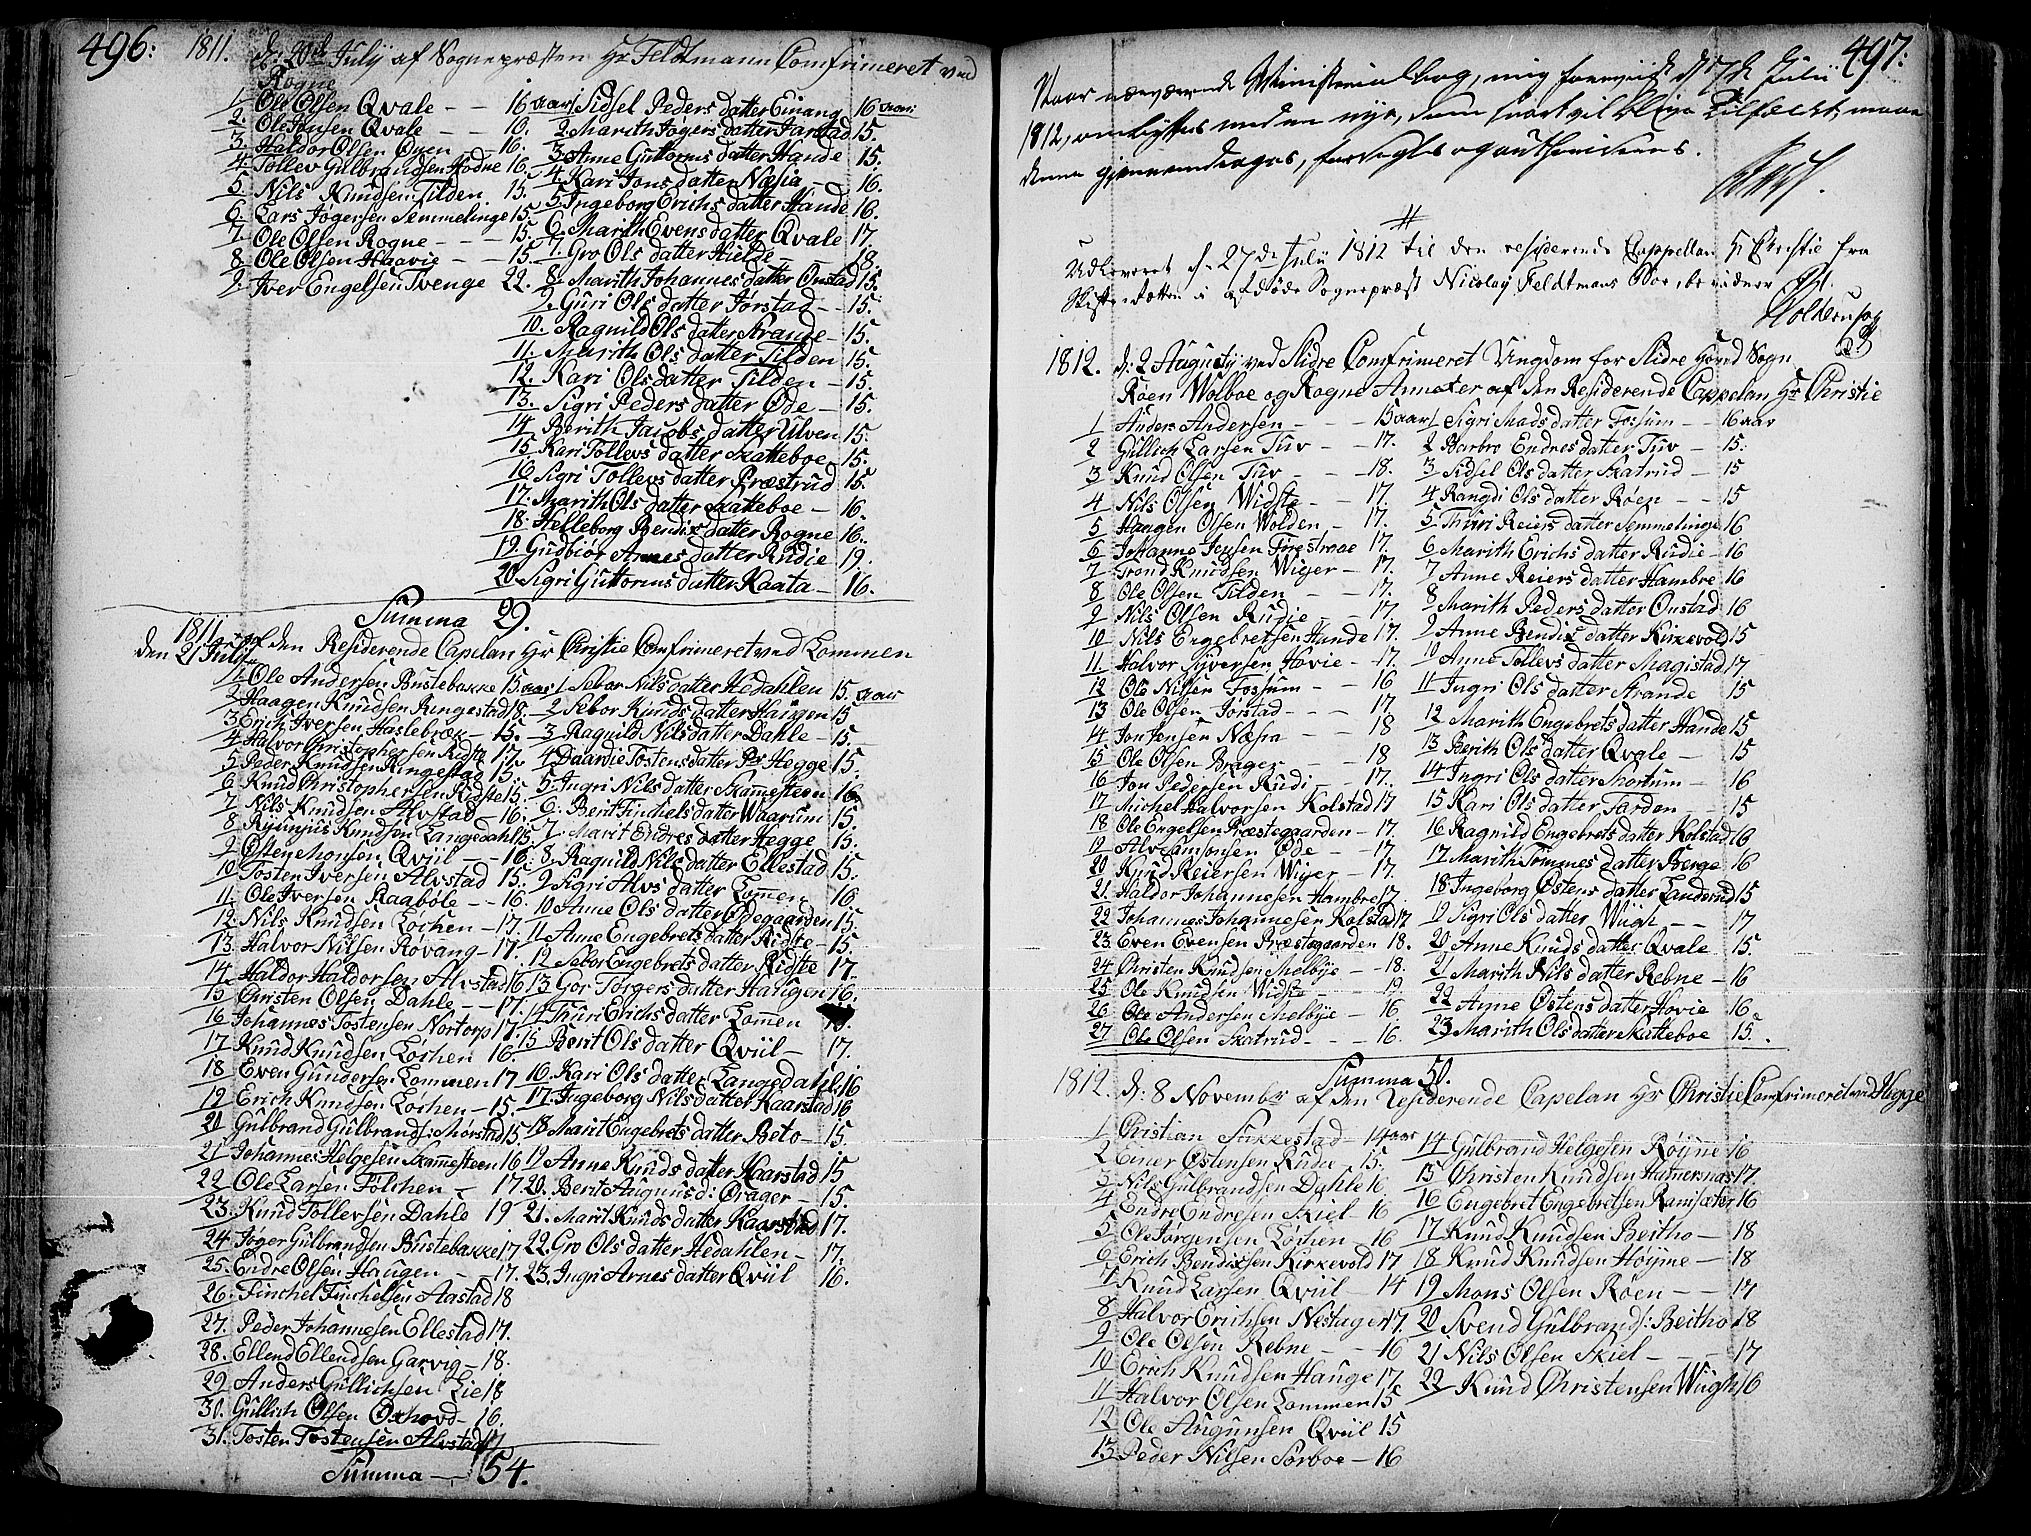 496:
1811. d: 20de July af Sognepræsten Hr Feldtmann Comfrimeret ved
Rogne
1. Ole Olsen Qvale - - 16 aar
2. Ole Jonsen Qvale - - 16.
3. Haldor Olsen Øyen - 16.
4. Tollev Gulbrandsen Hodne 16.
5. Nils Knudsen Tilden. 15.
6. Lars Jøgersen Semmelinge 15.
7. Ole Olsen Rogne - - - 15.
8. Ole Olsen Haavie - - 15.
9. Iver Engelsen Tvenge 22.
1 Sidsel Peders datter Einang 16 aar
2. Marith Jøgers datter Jarstad 15.
3. Anne Guttorms datter Hande 15.
4. Kari Jons datter Næsia - 16.
5. Ingeborg Erichs datter Hande 16.
6. Marith Evens datter Qvale 17.
7. Gro Ols datter Hielde - 18.
8. Marith Johannes datter Onstad 15.
9. Guri Ols datter Jørstad - 15.
10. Ragnild Ols datter Strande - 15.
11. Marith Ols datter Tilden 15.
12. Kari Ols datter Tilden - 15.
13. Sigri Peders datter Øde - 15.
14. Berith Jacobs datter Ulven 15.
15. Kari Tollevs datter Skatteboe 15.
16. Sigri Tollevs datter Præstrud 15.
17. Marith Ols datter Skatteboe - 16.
18. Helleborg Bendix datter Rogne 16.
19. Gudbiør Arnes datter Rudie 19.
20. Sigri Guttorms datter Kaata - 16.
Summa 29.
1811.
den 21 July af den Residerende Capelan Hr Christie Comfrimeret ved Lommen
1. Ole Andersen Bustebakke 15. aar
2. Haagen Knudsen Ringestad 18.
3. Erich Iversen Haslebræk - 15.
4. Halvor Christophersen Ridste 17.
5. Peder Knudsen Ringestad 15.
6. Knud Christophersen Ridste 15.
7. Nils Knudsen Alvstad - 16.
8 Knudsen Langedahl 15.
9. Østen Qviil - - 16.
10. Tosten Iversen Alvstad 15.
11. Ole Iversen Raaböle - - 16.
12. Nils Knudsen Löchen - 17.
13. Halvor Nilsen Røvang - 17.
14. Haldor Haldorsen Alvstad 16
15 Christen Olsen Dahle - - 17.
16 Johannes Tostensen Nortorp 17.
17 Knud Knudsen Löchen 16.
18 Even Gundersen Lommen 17
19 Erich Knudsen Löchen - 15.
20 Gulbrand Gulbrands: Mörstad 15
21 Johannes Helgesen Skammesteen 16
22 Ole Larsen Fölchen - 17.
23. Knud Tollevsen Dahle 19
24. Jøger Gulbrandsen Bustebakke 17
25. Endre Olsen Haugen - 17.
26. Finchel Finchelsen Aastad 18
27. Peder Johannesen Ellestad 17.
28. Ellend Ellendsen Garvig - 18.
29 Anders Gullichsen Lie 18
30. Gullich Olsen Oxhovd - 16.
31. Tosten Tostensen Alvstad 17
Summa - 54.
1 Sebor Nils datter Hedahlen 15. aar
2 Sebor Knuds datter Haugen 15
3. Ragnild Nils datter Dahle - 15.
4 Daardie Tostens datter Hegge 15.
5. Ingri Nils datter Skamesteen 16.
6. Berit Finchels datter Waarum 15.
7. Marit Endres datter Hegge 15.
8. Ragnild Nils datter Ellestad 15.
9 Sigri Alvs datter Lommen 16
10 Anne Ols datter Ødegaarden 15.
11 Anne Engebrets datter Ridste - 15.
12 Sebor Engebrets datter Ridste 17.
13 Gor Torgers datter Haugen 16.
14 Thuri Erichs datter Lommen
15 Berit Ols datter Qviil - 17.
16. Kari Ols datter Langedahl 16
17. Ingeborg Nils datter Kaarstad 16
18 Marit Engebrets datter Beto - 15.
19 Anne Knuds datter Kaarstad 15
20. Berit Augunsd: Qrager - 15.
21. Marit Knuds datter Kaarstad 17.
22. Gro Ols datter Hedahlen - 17.
23. Ingri Arnes datter Qviil 16.
497:
nærværende Ministerialbog, mig foreviist d. 17de Julii
1812, ombyttes med en nye, som snart vil blive Tilfældet, maae
denne giennemdrages, forsegles og authoriseres.
Udleveret d. 27de July 1812 til den residerende Cappellan Hr Christie fra
Skifteretten i afdøde Sognepræst Nicolay Feldtmans Boe, bevidner
1812. d: 2 Augusty ved Slidre Comfrimeret Ungdom for Slidre Hoved Sogn
Røen Wolboe og Rogne Annexer af den Residerende Cappelan Hr Christie
1 Anders Andersen - - - 15 aar
2 Gullich Larsen Tuv - - 17.
3 Knud Olsen Tuv - - 18.
4 Nils Olsen Widste - - 17.
5 Haagen Olsen Wolden - 17.
6 Johanne Jensen Firestraae 17.
7 Trond Knudsen Wiger - 17.
8 Ole Olsen Tilden - - 17.
9 Nils Olsen Rudie - - 17.
10 Nils Engebretsen Hande 17.
11. Halvor Syversen Hovie - 17.
12 Ole Nilsen Fossum - - 16
13 Ole Olsen Jørstad - - - 17
14 Jon Jensen Næsia - - 18
15 Ole Olsen Brager - - 18
16 Jon Pedersen Rudi - 17.
17 Michel Halvorsen Kolstad 17
18 Ole Engelsen Præstegaarden - 17.
19 Alv Simonsen Øde - - 17
20 Knud Reiersen Wiger - 17.
21. Haldor Johannesen Hambre 17
22 Johannes Johannesen Kolstad 17
23. Even Evensen Præstegaarden 18.
24 Christen Knudsen Melbye - - 18.
25 Ole Knudsen Widste - - 19
26 Ole Andersen Melbye - 16.
27 Ole Olsen Skatrud - - - 16.
1 Sigri Mads datter Fossum - - 16 aar
2 Barbro Endres datter Tuv - 15.
3 Sidsel Ols datter Skatrud - 15
4 Rangdi Ols datter Røen - - 15
5. Thuri Reiers datter Semmelinge 16
6 Marith Erichs datter Rudie - 16
7 Anne Reiers datter Hambre 16
8 Marith Peders datter Onstad 16
9 Anne Bendix datter Kirkevold 15
10 Anne Tollevs datter Magistad 17
11 Ingri Ols datter Strande 15
12 Marith Engebrets datter Hande 15
13 Berith Ols datter Qvale - 15
14 Ingri Ols datter Mortum - 16
15 Kari Ols datter Jorden - - 15
16 Ragnild Engebrets datter Kolstad 16
17 Marith Tommes datter Berge 16
18 Ingeborg Østens datter Landerud 15
19 Sigri Ols datter Wigh - - 17
20 Anne Knuds datter Qvale 15.
21 Marith Nils datter Rebne - 16
22 Anne Østens datter Hovie 16
23 Marith Ols datter Skatteboe 15.
Summa 50.
1812. d: 8 November af den Residerende Capelan Hr Christie Comfrimeret ved Hegge
1 Christian Sukkestad - 14 aar
2 Einer Østensen Rudie 15.
3 Nils Gulbrandsen Dahle 16
4 Endre Endresen Skiel 16
5 Ole Jørgensen Löchen - 16
6 Erich Bendixsen Kirkevold 17
7 Knud Larsen Qviil - 14
8 Halvor Erichsen Nestager 17
9 Ole Olsen Rebne - - 16
10 Erich Knudsen Hauge 17
11 Halvor Olsen Lommen 15
12 Ole Augunsen Qviil 15
13 Peder Nilsen Sørboe - 16
14 Gulbrand Helgesen Røyne 16
15 Christen Knudsen Hamersnas 17.
16 Engebret Engebretsen Ramsæter 16
17 Knud Knudsen Beitho - 18
18 Knud Knudsen Høyme - 18
19 Mons Olsen Røen - - 17
20 Svend Gulbrands: Beitho 18
21 Nils Olsen Skiel - - - 17
22 Knud Christensen Wigh 16